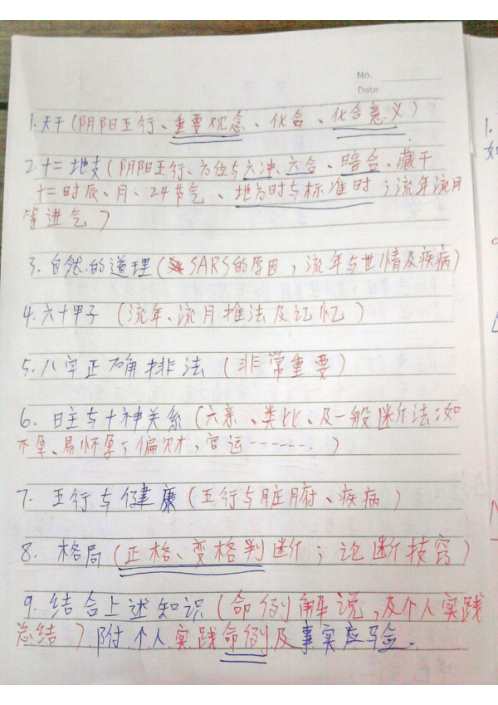 No.
Date
1.天干(阴阳五行、重要观念、化合、化合意义)
2.十二地支(阴阳五行、方位与六冲、六合、暗合、藏干
十二时辰、月、24节气、地方时与标准时;流年流月
等进气)
3.自然的道理(SARS的原因,流年与世情及疾病)
4.六十甲子(流年、流月推法及记忆)
5.八字正确排法(非常重要)
6.日主与十神关系(六亲、类比、及一般断法:如
不孕、易怀孕、偏财,官运……)
7.五行与健康(五行与脏腑、疾病)
8.格局(正格、变格判断;论断技窍)
9.结合上述知识(命例解说,及个人实践
总结)附个人实践命例及事实应验.
1.